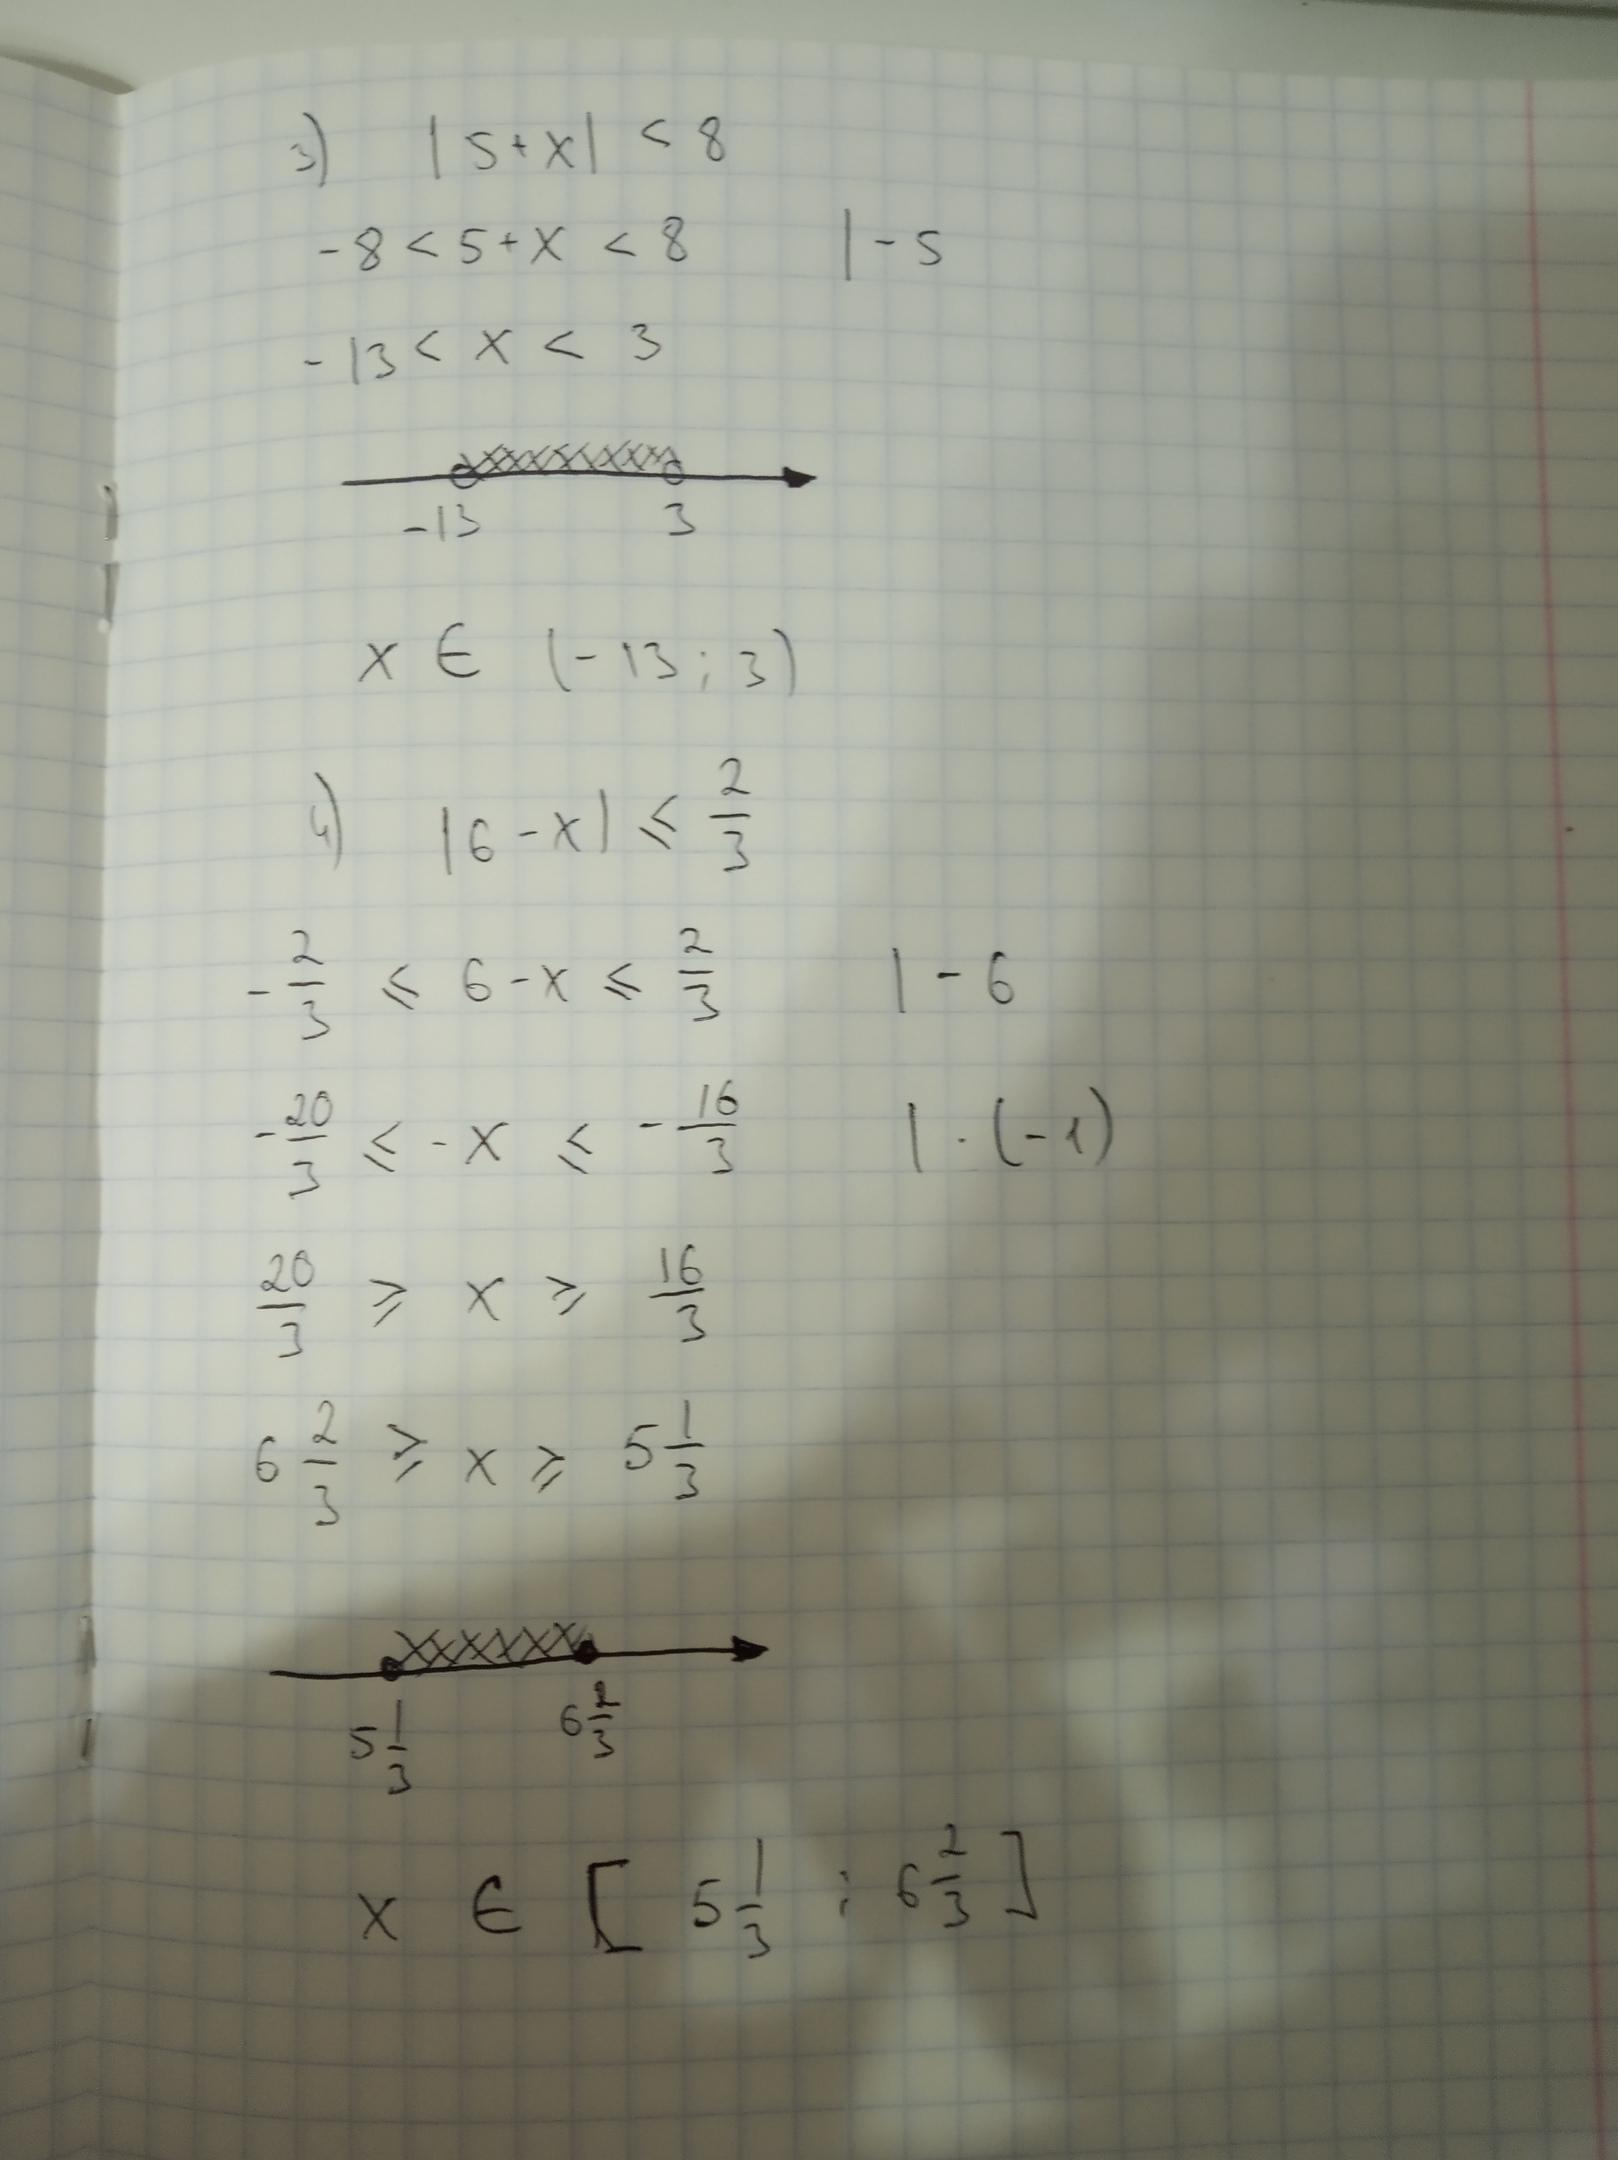 3) |5+x| < 8
-8 < 5+x < 8 |-5
-13 < x < 3
-13 3
x ∈ (-13; 3)
4) |6-x| ⩽ 2/3
-2/3 ⩽ 6-x ⩽ 2/3 |-6
-20/3 ⩽ -x ⩽ -16/3 |·(-1)
20/3 ⩾ x ⩾ 16/3
6 2/3 ⩾ x ⩾ 5 1/3
5 1/3 6 2/3
x ∈ [5 1/3 ; 6 2/3]